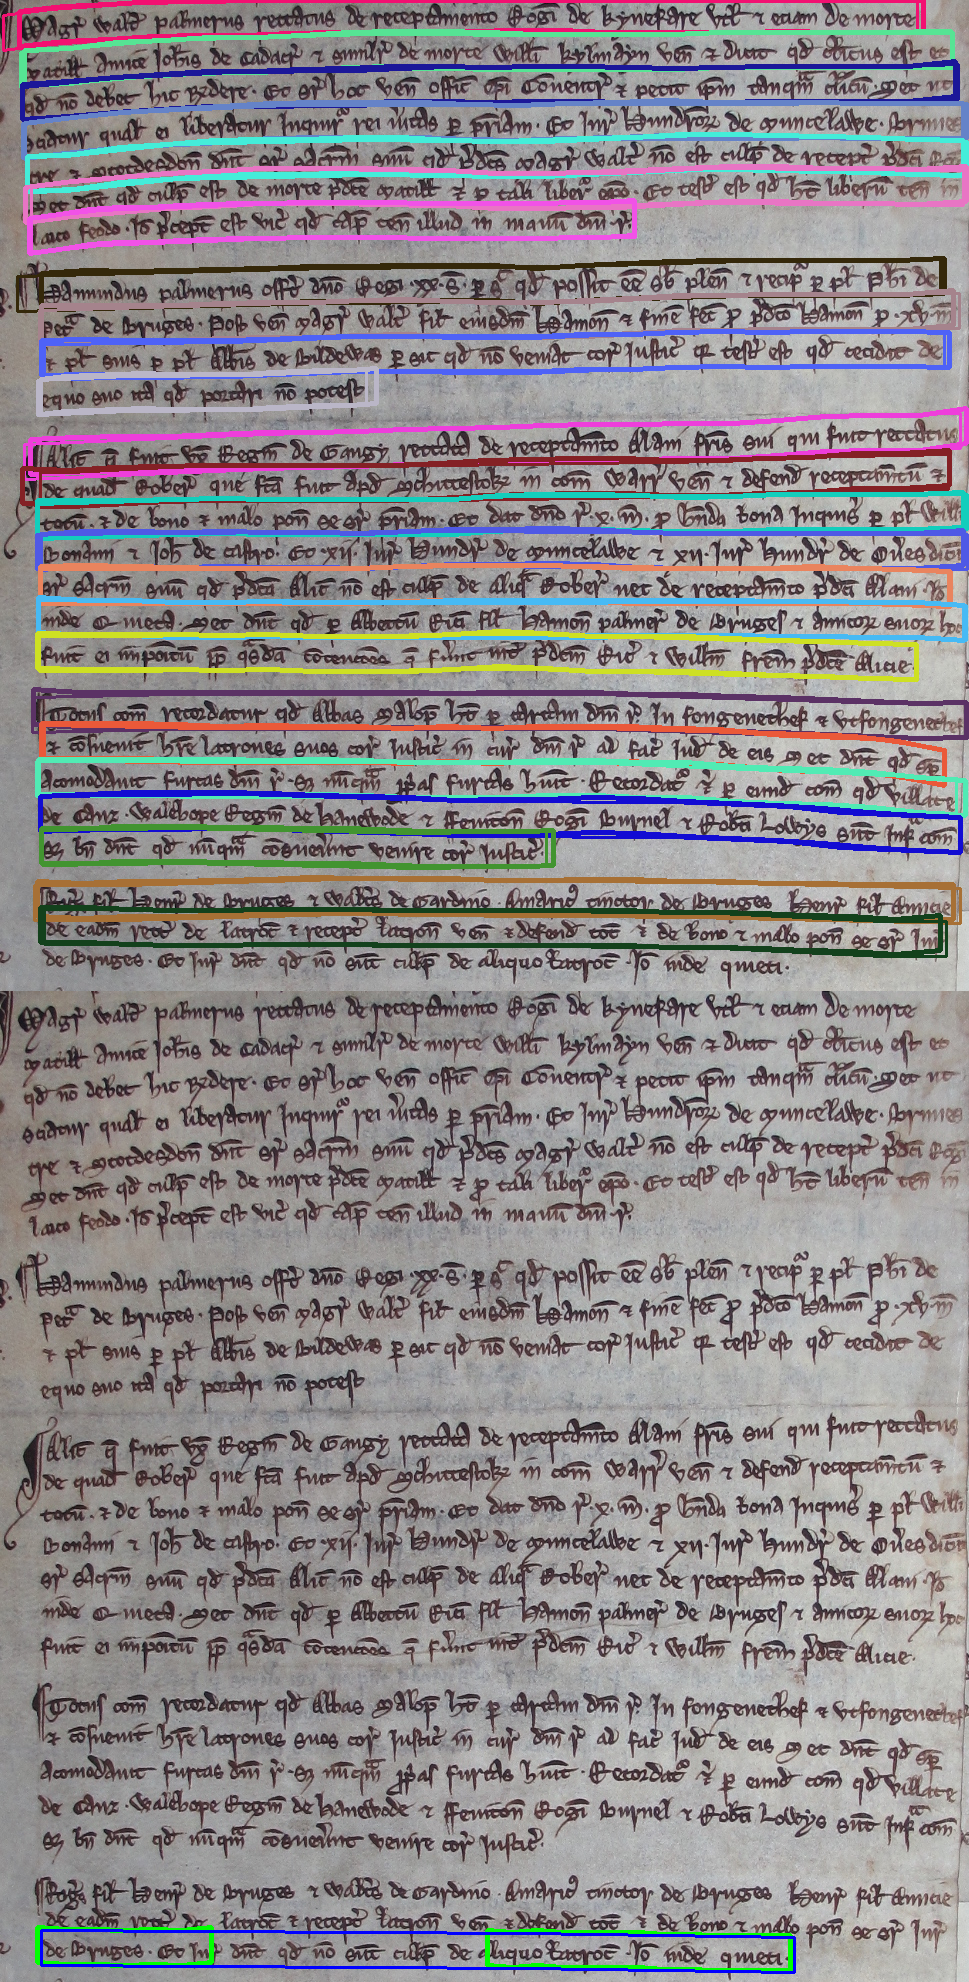 Magr Walt palmerus rettatus de receptamento Rogi de kynefare utl & etiam de morte
Matill amice Johis de Cadacr & similr de morte Willi kylmayn ven & dicit qd clicus est et
qd no debet hic rndere. Et sr hoc ven offic epi Coventr & petit ipm tanqm clicu. Set ut
sciatur qual ei liberatur Inquirr rei vitas p priam. Et Jur Hundror de Muncelawe. Brumes
tre & Stotdesdon dnt sr sacrm suu qd pdcs Magr Walt no est culp de recept pdci Rogi
Set dnt qd culp est de morte pdce Matill & io p tali liberr epo. Et test est qd ht liberu ten in
laico feodo. Io pcept est vic qd cap ten illud in manu dni r.
Hamundus palmerus offert dno Regi .xx.s. p sic qd possit ee sb plen & recipr p pl Phi de
Petra de Bruges. Post ven Magr Walt fil eiusdm Hamon & fine fec pro pdco Hamon pro .xv.m
& pl suis p pl Abbis de Bildewas p sic qd no veniat cor Justic qr test est qd cecidit de
equo suo ita qd portari no potest
Alic que fuit ux Regin de Gangy rettata de receptamto Alani fris sui qui fuit rettatus
de quad Rober que fca fuit apd Whittestok in com Warr ven & defend receptamtu &
totu. & de bono & malo pon se sr priam. Et dat dno r .x. m. pro hnda bona Inquis p pl Willi
Bonami & Joh de castro. Et .xii. Jur Hundr de Muncelawe & .xii. Jur hundr de Overs dicu
sr sacrm suu qd pdca Alic no est culp de aliq Rober nec de receptamto pdci Alani. Io
inde Quieta. Set dnt qd p Abbettu Rici fil Hamon palmer de Bruges & amicor suor hoc
fuit ei impoitu pp qsda cotencoes que fuunt int pdcm Ric & Willm frem pdce Alicie.
Totus com recordatur qd Abbas Salop ht p cartam dni r. Infongenethef & utfongenethef
& cosuevit hre latrones suos cor Justic in cur dni r ad fac Jud de eis Set dnt qd sp
acomodant furcas dni r. Sz nuqm ppas furcas hunt. Recordatr & p eund com qd Villate
de Canr. Walehope Regin de hanewode & ffenicon Rogi Burnel & Robti Lowys sunt infra com
Sz bn dnt qd nuqm cosueverunt venire cor Justic.
Rogs fil Henr de Bruges & Walts de Gardino. Amaric tinctor de Bruges Henr fil Amicie
de eadm rett de latroc & recept latron ven & defend tot & de bono & malo pon se sr Jur
de Bruges. Et Jur dnt qd no sunt culp de aliquo latroc. Io inde quieti.
Magr Walt palmerus rettatus de receptamento Rogi de kynefare utl & etiam de morte
Matill amice Johis de Cadacr & similr de morte Willi kylmayn ven & dicit qd clicus est et
qd no debet hic rndere. Et sr hoc ven offic epi Coventr & petit ipm tanqm clicu. Set ut
sciatur qual ei liberatur Inquirr rei vitas p priam. Et Jur Hundror de Muncelawe. Brumes
tre & Stotdesdon dnt sr sacrm suu qd pdcs Magr Walt no est culp de recept pdci Rogi
Set dnt qd culp est de morte pdce Matill & io p tali liberr epo. Et test est qd ht liberu ten in
laico feodo. Io pcept est vic qd cap ten illud in manu dni r.
Hamundus palmerus offert dno Regi .xx.s. p sic qd possit ee sb plen & recipr p pl Phi de
Petra de Bruges. Post ven Magr Walt fil eiusdm Hamon & fine fec pro pdco Hamon pro .xv.m
& pl suis p pl Abbis de Bildewas p sic qd no veniat cor Justic qr test est qd cecidit de
equo suo ita qd portari no potest
Alic que fuit ux Regin de Gangy rettata de receptamto Alani fris sui qui fuit rettatus
de quad Rober que fca fuit apd Whittestok in com Warr ven & defend receptamtu &
totu. & de bono & malo pon se sr priam. Et dat dno r .x. m. pro hnda bona Inquis p pl Willi
Bonami & Joh de castro. Et .xii. Jur Hundr de Muncelawe & .xii. Jur hundr de Overs dicu
sr sacrm suu qd pdca Alic no est culp de aliq Rober nec de receptamto pdci Alani. Io
inde Quieta. Set dnt qd p Abbettu Rici fil Hamon palmer de Bruges & amicor suor hoc
fuit ei impoitu pp qsda cotencoes que fuunt int pdcm Ric & Willm frem pdce Alicie.
Totus com recordatur qd Abbas Salop ht p cartam dni r. Infongenethef & utfongenethef
& cosuevit hre latrones suos cor Justic in cur dni r ad fac Jud de eis Set dnt qd sp
acomodant furcas dni r. Sz nuqm ppas furcas hunt. Recordatr & p eund com qd Villate
de Canr. Walehope Regin de hanewode & ffenicon Rogi Burnel & Robti Lowys sunt infra com
Sz bn dnt qd nuqm cosueverunt venire cor Justic.
Rogs fil Henr de Bruges & Walts de Gardino. Amaric tinctor de Bruges Henr fil Amicie
de eadm rett de latroc & recept latron ven & defend tot & de bono & malo pon se sr Jur
de Bruges. Et Jur dnt qd no sunt culp de aliquo latroc. Io inde quieti.